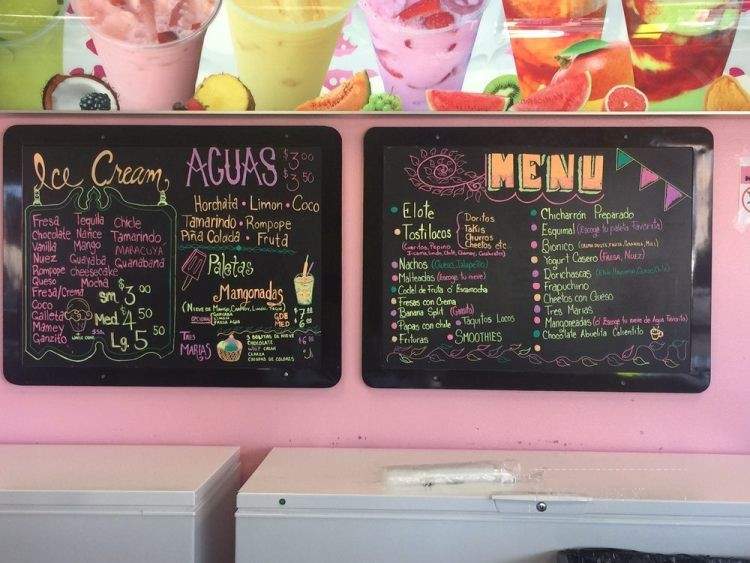 Ice Cream
Fresa Tequila Chicle
Chocolate Nance Tamarindo
Vanilla Mango MARACUYA
Nuez Guayaba Guanabana
Rompope Cheesecake
Queso Mocha
Fresa/Crema
Coco
Galleta
Mamey
Ganzito
Sm. $3.00
Med. $4.50
Lg. 5.50
AGUAS $3.00
$3.50
Horchata • Limon • Coco
Tamarindo • Rompope
Piña Colada • Fruta
Paletas
Mangonadas
GDE $7.00
MED $6.00
TRES
MARIAS
3 BOLITAS DE NIEVE
CHOCOLATE
WHIP CREAM
CEREZA
CHISPAS DE COLORES
MENU
Elote
Tostilocos
Doritos
Takis
Churros
Cheetos etc.
(Cueritos, Pepino
Nachos (Queso, Jalapeño)
Malteadas (Escoge tu nieve)
Coctel de Fruta o/ Escamocha
Fresas con Crema
Banana Split
Papas con chile
Frituras
Taquitos Locos
SMOOTHIES
Chicharrón Preparado
Esquimal (Escoge tu paleta favorita)
Bionico
Yogurt Casero (FRESA, NUEZ)
Dorichascas
Frapuchino
Cheetos con Queso
Tres Marias
Mangoneadas (o/ Escoge tu nieve de Agua Favorita)
Chocolate Abuelita Calientito